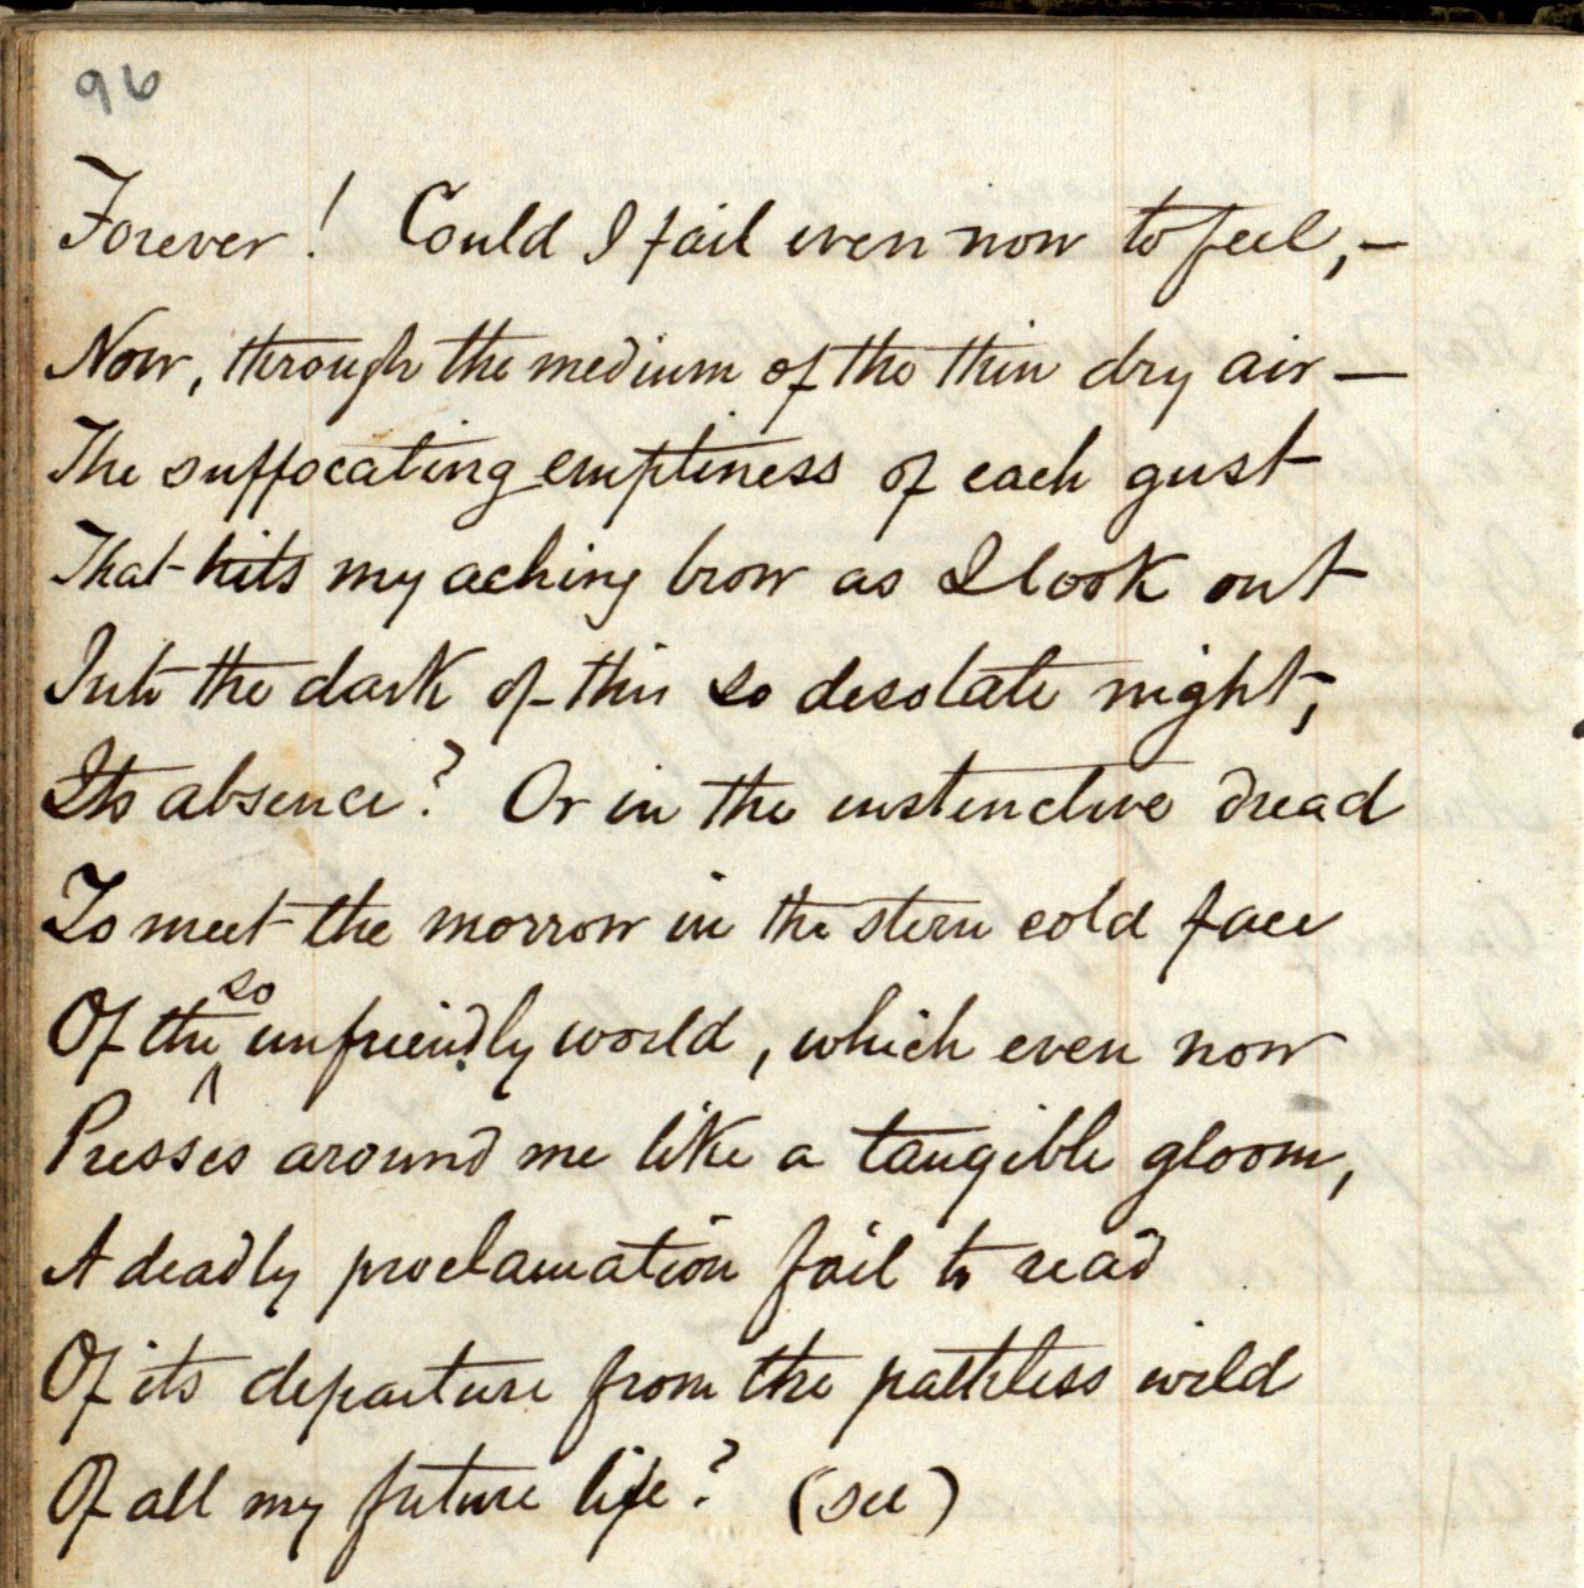 96
Forever! Could I fail even now to feel,—
Now, through the medium of the thin dry air—
The suffocating emptiness of each gust
That hits my aching brow as I look out
Into the dark of this so desolate night,
Its absence? Or in the instinctive dread
To meet the morrow in the stern cold face
Of the so unfriendly world, which even now
Presses around me like a tangible gloom,
A deadly proclamation fail to read
Of its departure from the pathless wild
Of all my future life? (see)